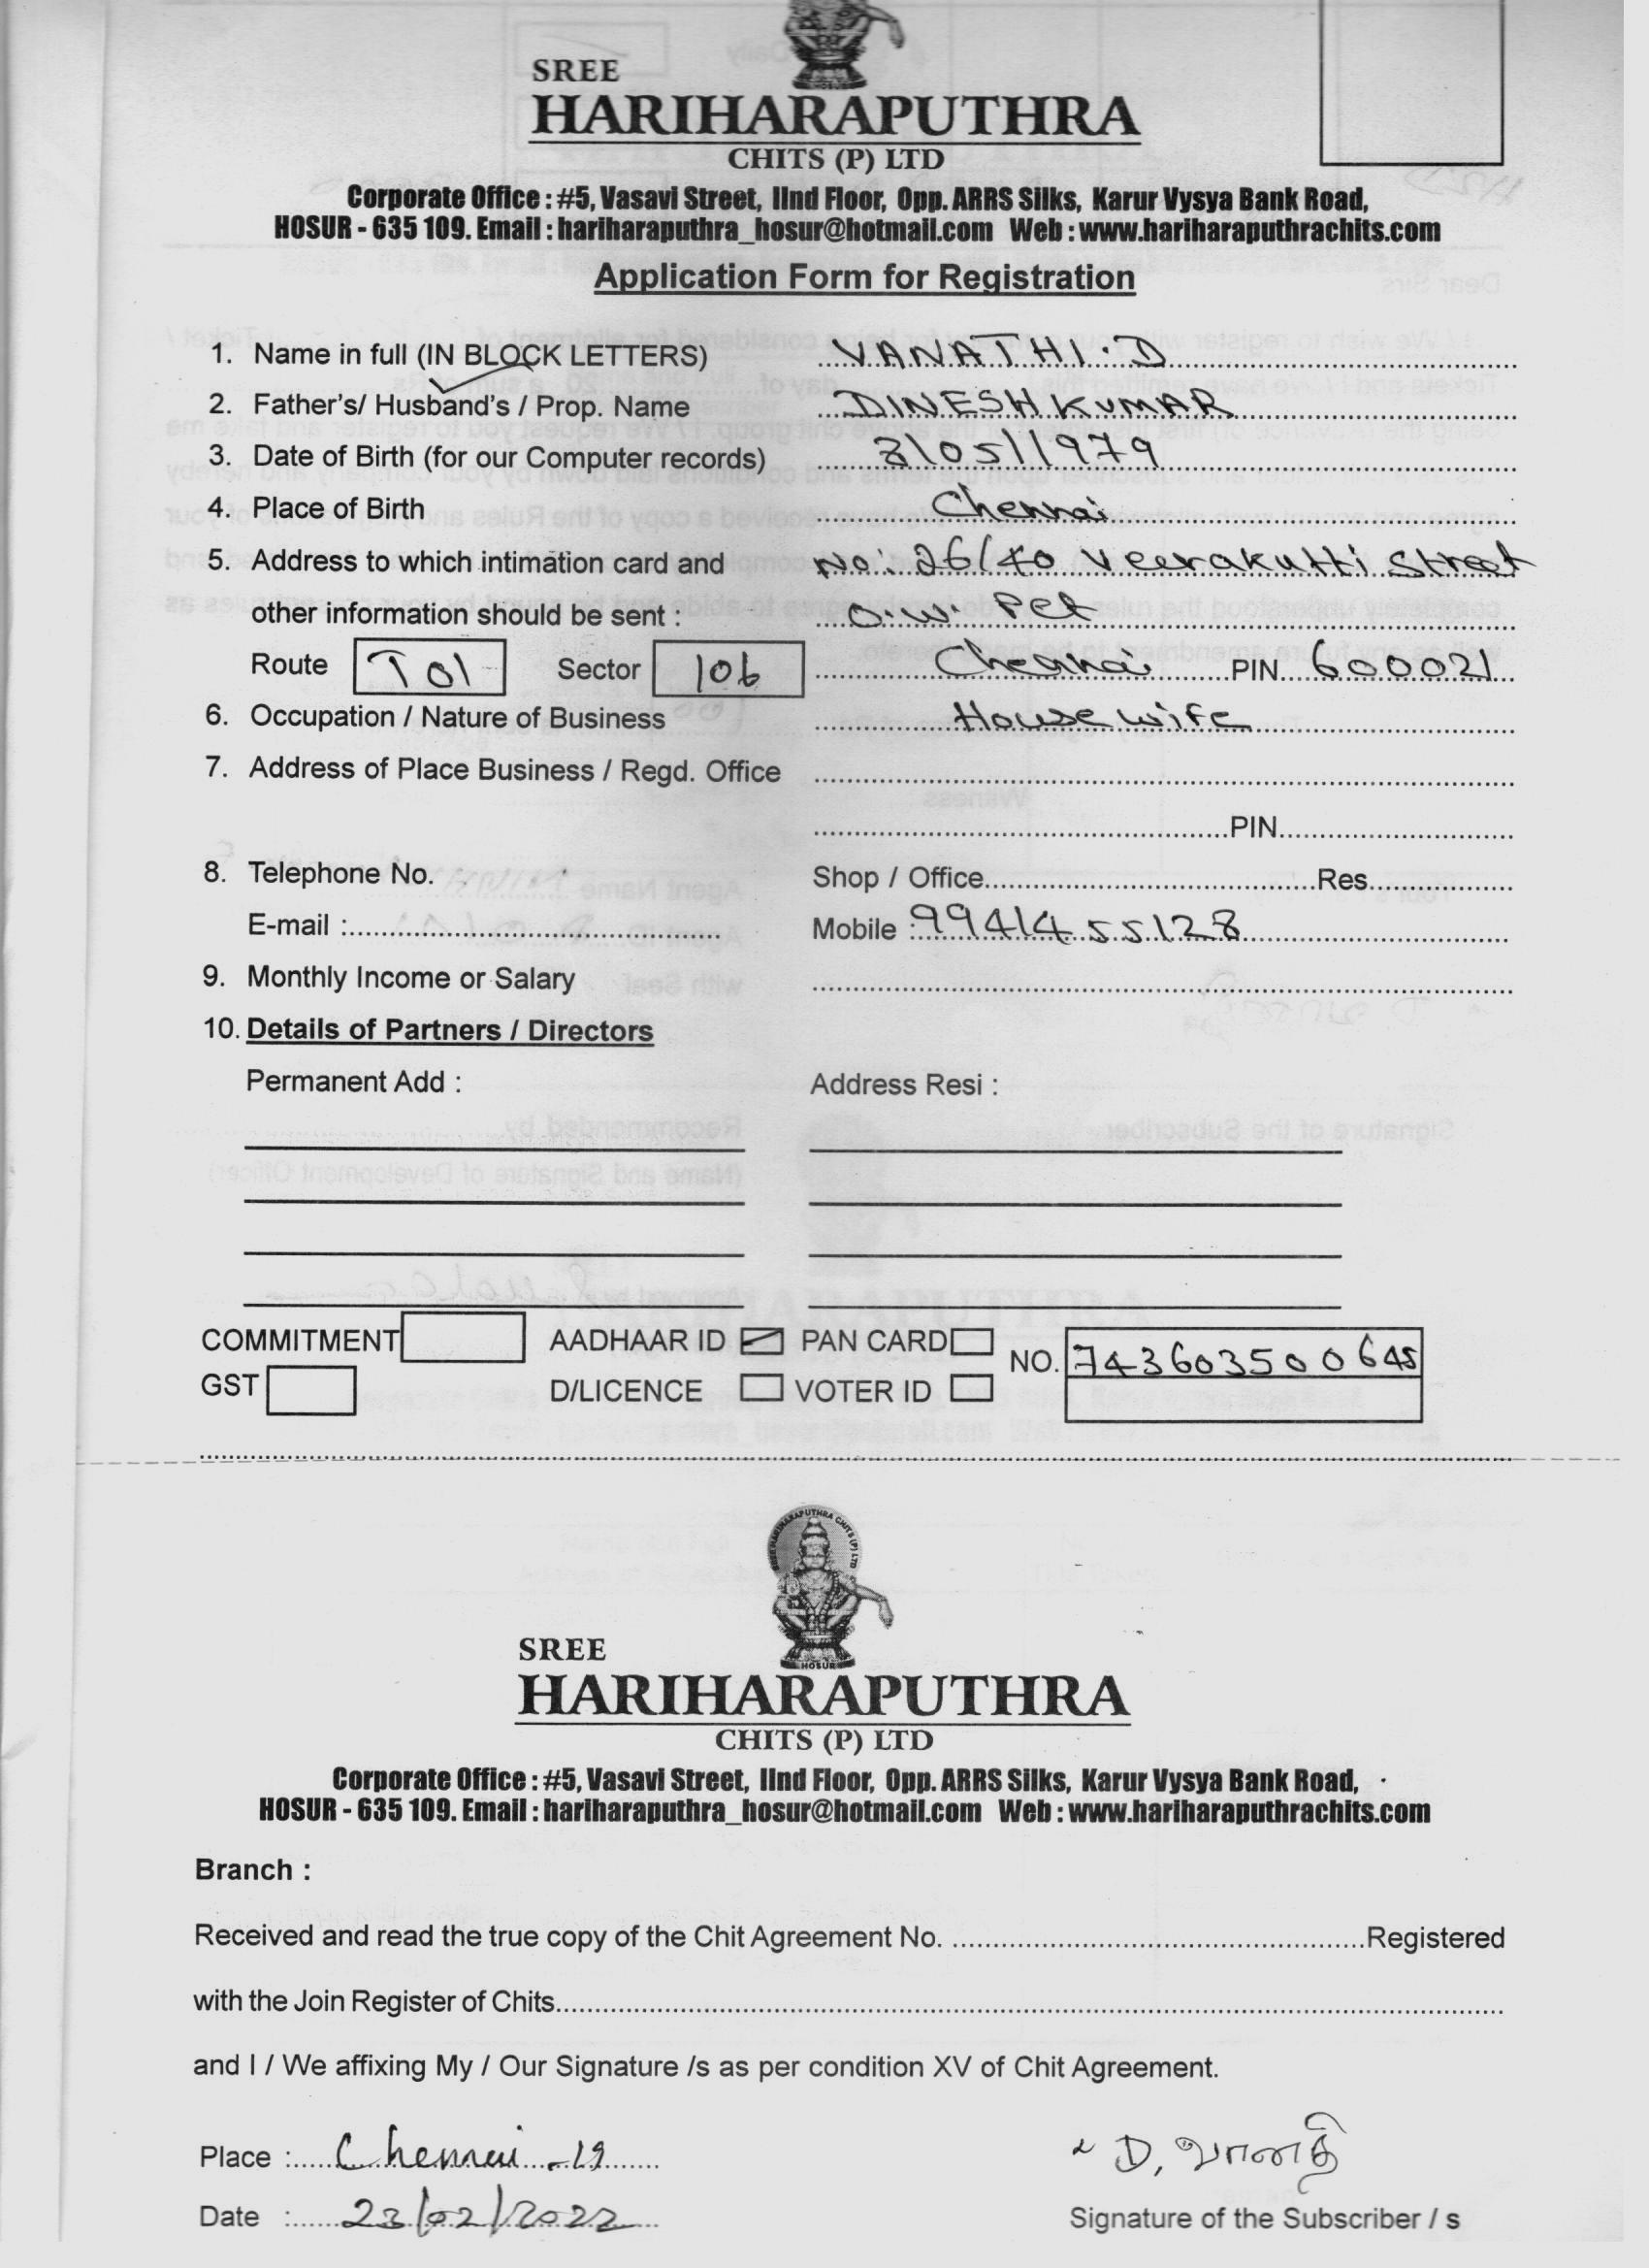 SREE
HARIHARAPUTHRA
CHITS (P) LTD
Corporate Office : #5, Vasavi Street, IInd Floor, Opp. ARRS Silks, Karur Vysya Bank Road,
HOSUR - 635 109. Email : hariharaputhra_hosur@hotmail.com Web : www.hariharaputhrachits.com
Application Form for Registration
1. Name in full (IN BLOCK LETTERS) VANATHI . D
2. Father's/ Husband's / Prop. Name DINESH KUMAR
3. Date of Birth (for our Computer records) 31/05/1979
4. Place of Birth Chennai
5. Address to which intimation card and No: 26/40 Veerakutti Street
other information should be sent : O.W. Pet
Route T01 Sector 106 Chennai PIN 600021
6. Occupation / Nature of Business House wife
7. Address of Place Business / Regd. Office
PIN
8. Telephone No. Shop / Office Res.
E-mail : Mobile : 99414 55128
9. Monthly Income or Salary
10. Details of Partners / Directors
Permanent Add : Address Resi :
COMMITMENT AADHAAR ID PAN CARD NO. 743603500645
GST D/LICENCE VOTER ID
SREE HARIHARAPUTHRA CHITS (P) LTD
HOSUR
SREE
HARIHARAPUTHRA
CHITS (P) LTD
Corporate Office : #5, Vasavi Street, IInd Floor, Opp. ARRS Silks, Karur Vysya Bank Road,
HOSUR - 635 109. Email : hariharaputhra_hosur@hotmail.com Web : www.hariharaputhrachits.com
Branch :
Received and read the true copy of the Chit Agreement No. Registered
with the Join Register of Chits
and I / We affixing My / Our Signature /s as per condition XV of Chit Agreement.
Place : Chennai - 19 D. வானதி
Date : 23/02/2022 Signature of the Subscriber / s